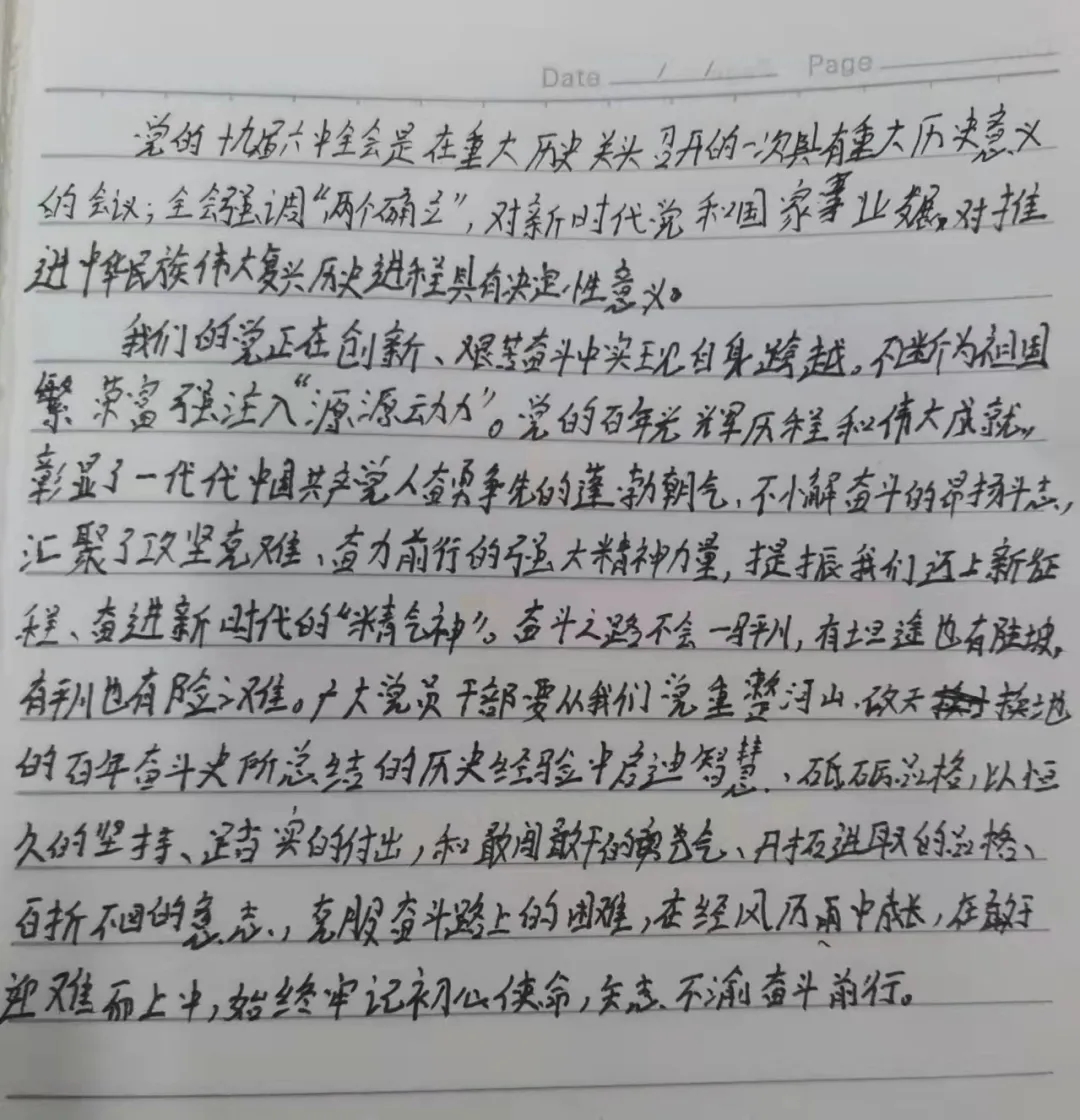 Date / / Page
党的十九届六中全会是在重大历史关头召开的一次具有重大历史意义
的会议；全会强调“两个确立”，对新时代党和国家事业发展，对推
进中华民族伟大复兴历史进程具有决定性意义。
我们的党正在创新、艰苦奋斗中实现自身跨越。不断为祖国
繁荣富强注入“源源动力”。党的百年光辉历程和伟大成就，
彰显了一代代中国共产党人奋勇争先的蓬勃朝气、不懈奋斗的昂扬斗志，
汇聚了攻坚克难、奋力前行的强大精神力量，提振我们迈上新征
程、奋进新时代的“精气神”。奋斗之路不会一马平川，有坦途也有陡坡，
有平川也有险滩。广大党员干部要从我们党重整河山、改天换地
的百年奋斗史所总结的历史经验中启迪智慧、砥砺品格，以恒
久的坚持、踏实的付出，和敢闯敢干的勇气、开拓进取的品格、
百折不回的意志，克服奋斗路上的困难，在经风历雨中成长，在敢于
迎难而上中，始终牢记初心使命，矢志不渝奋斗前行。